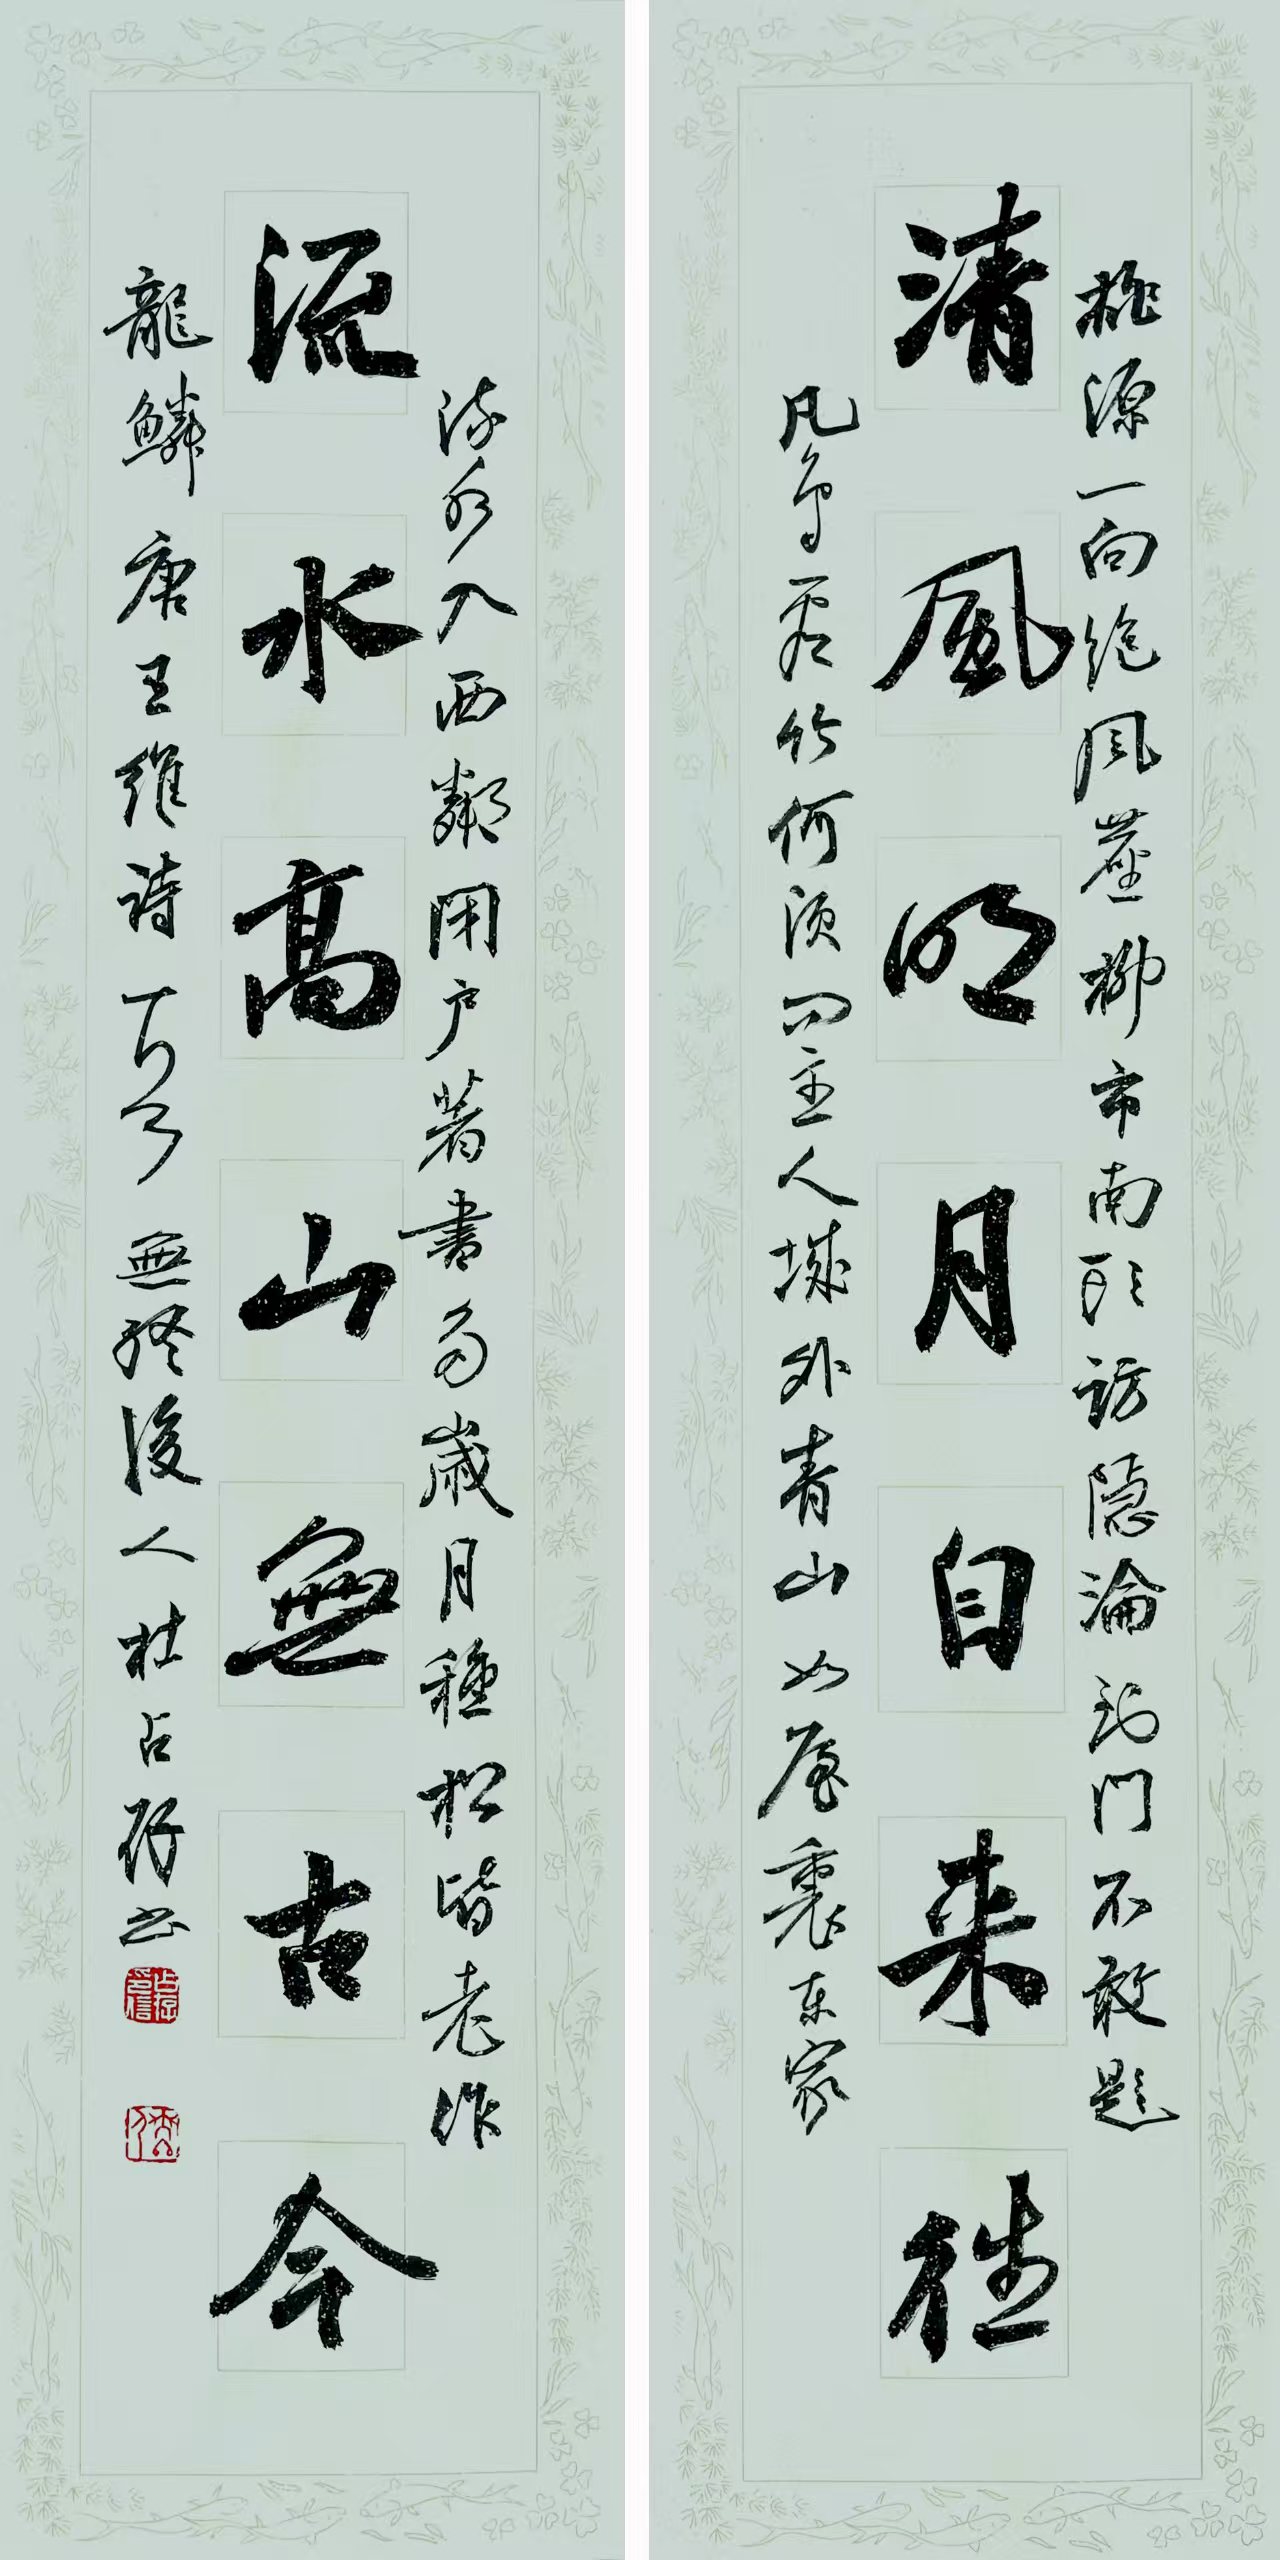 桃源一向绝风塵柳市南頭訪隱淪到門不敢題
清風明月自来往
凡鳥看竹何須問主人城外青山如屋裏東家
流水入西鄰閉户著書多歲月種松皆老作
流水高山無古今
龍鱗 唐王維詩 無終後人杜占存书